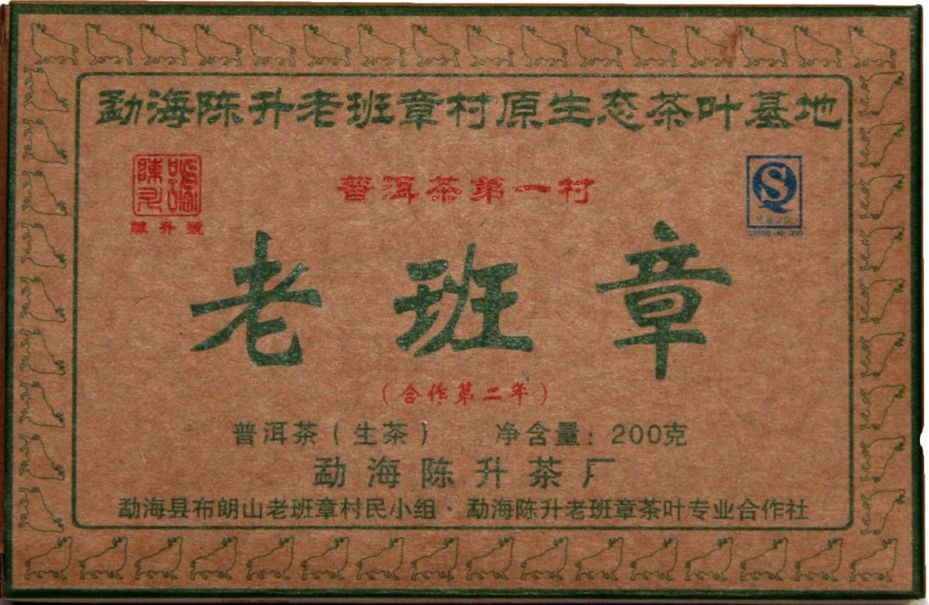 勐海陈升老班章村原生态茶叶基地
陳升號
陳升號
普洱茶第一村
老班章
（合作第二年）
普洱茶（生茶） 净含量：200克
勐海陈升茶厂
勐海县布朗山老班章村民小组·勐海陈升老班章茶叶专业合作社